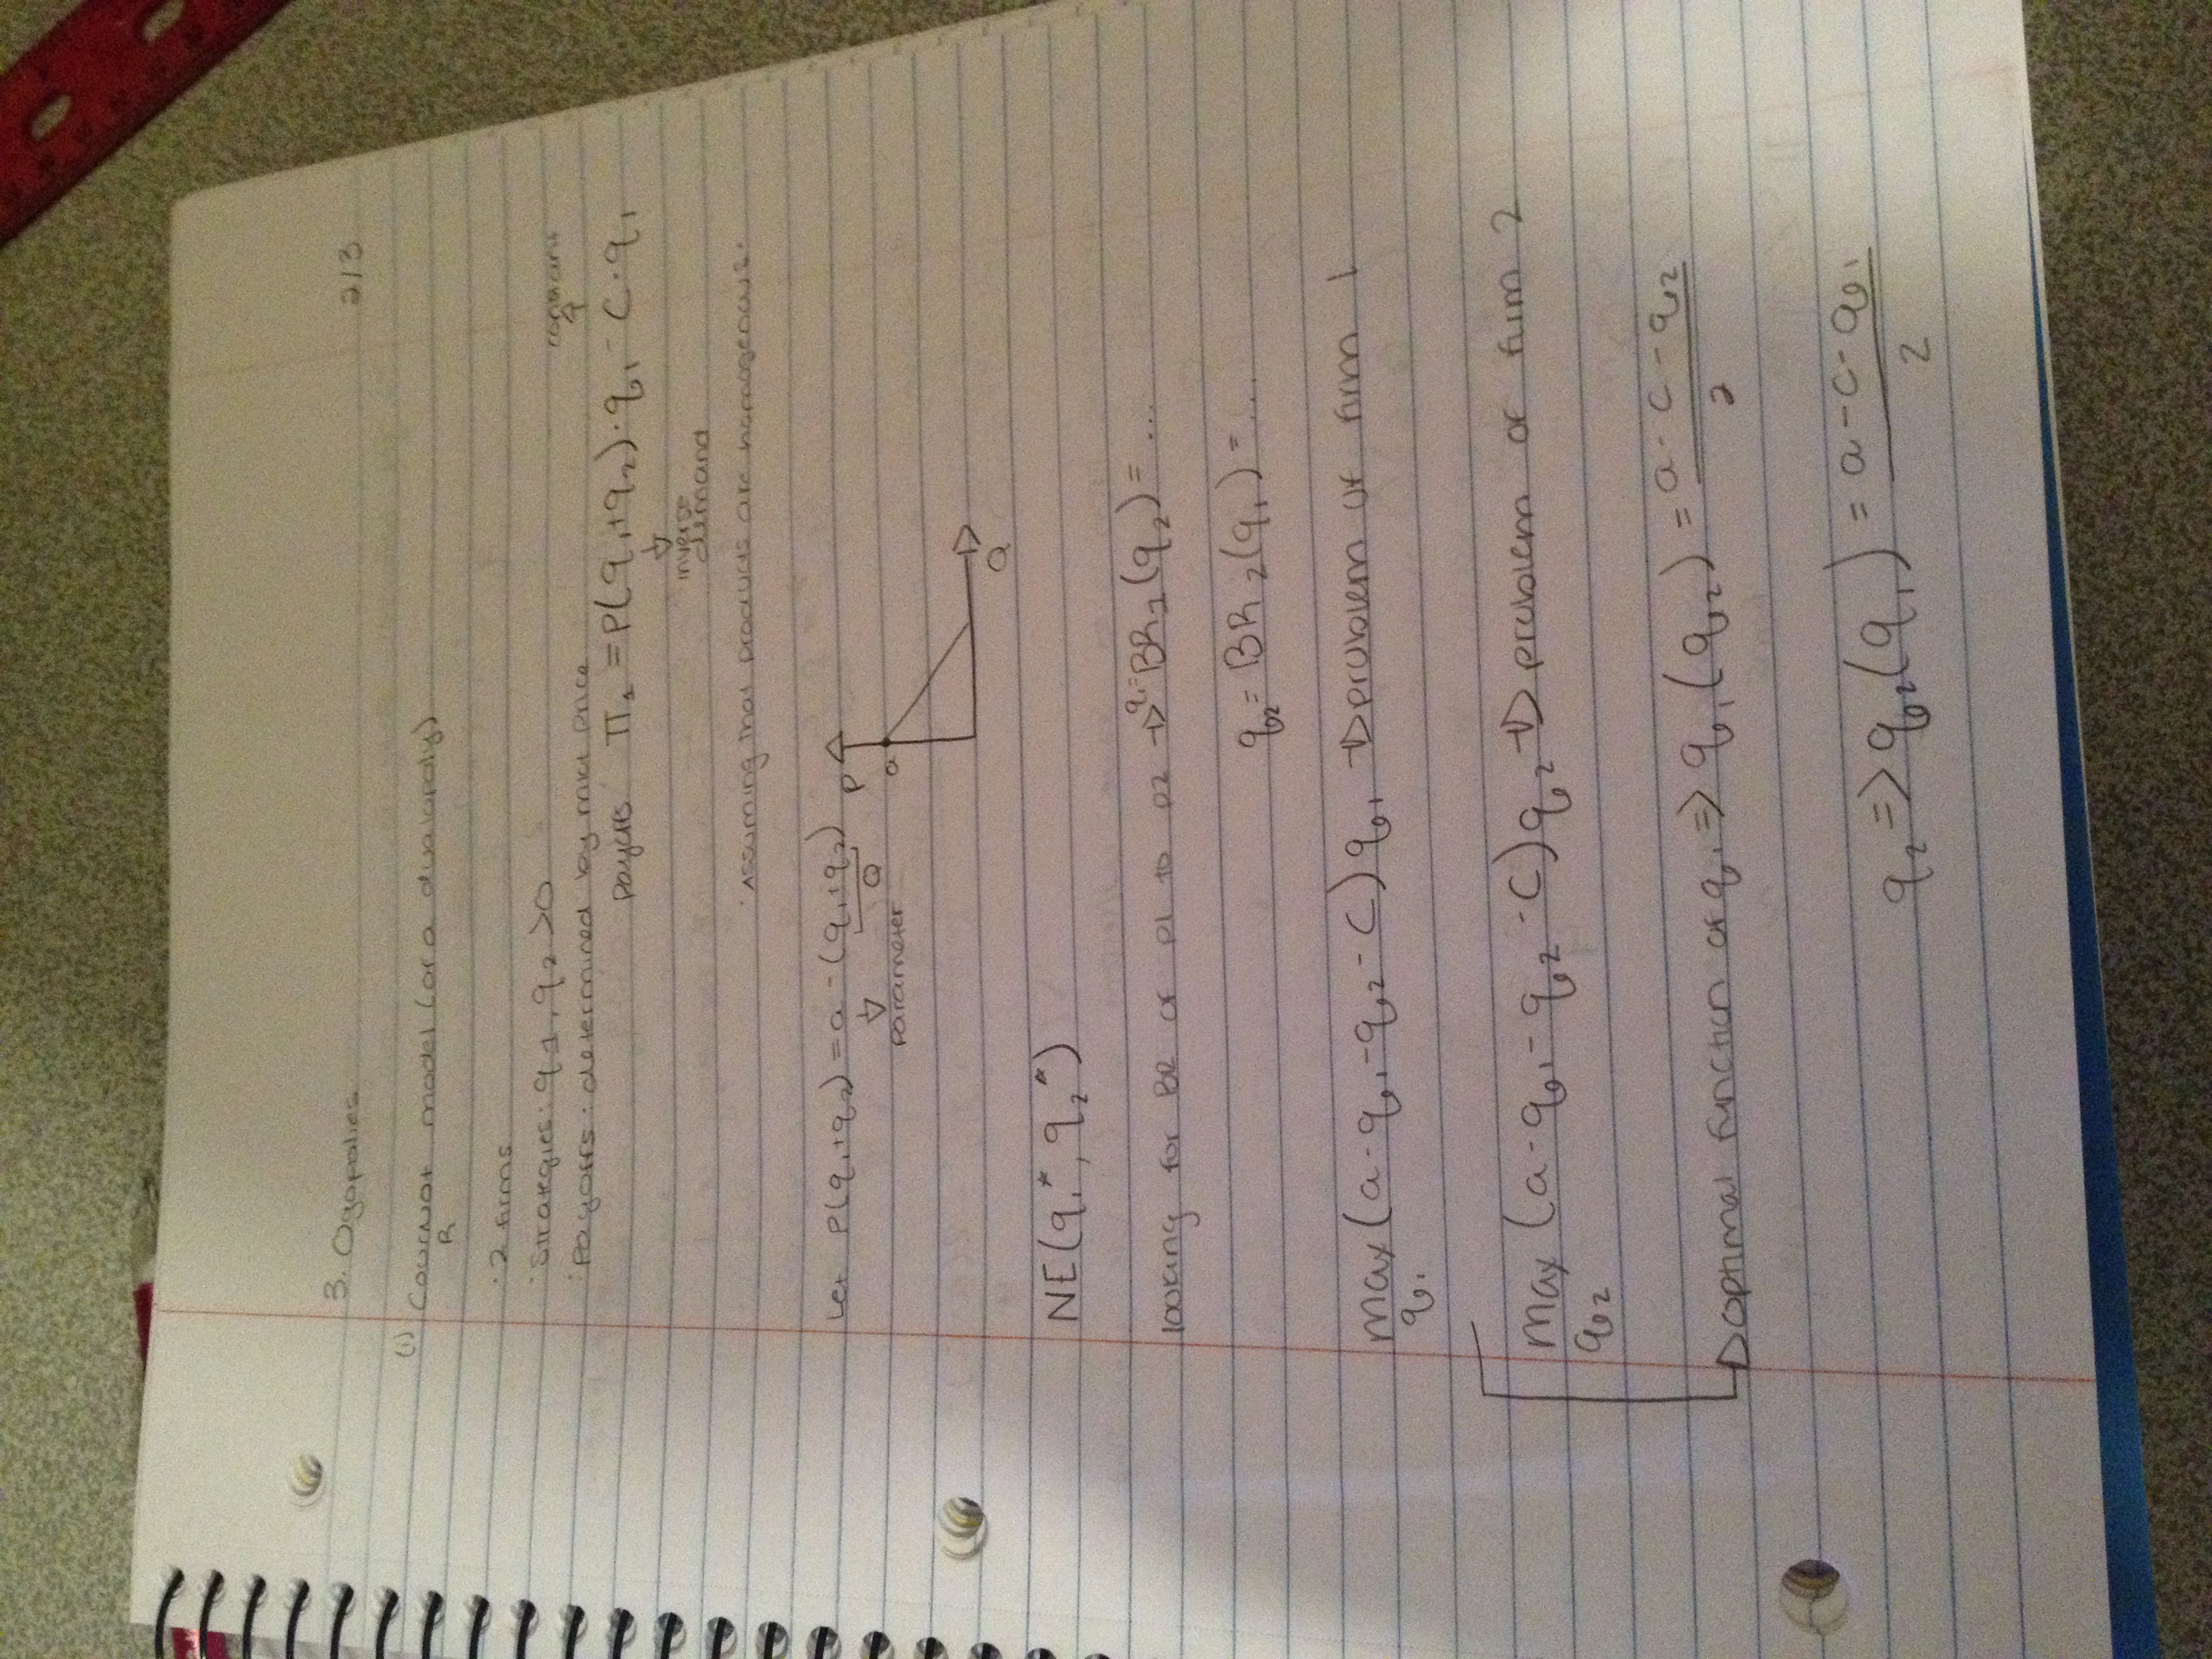 3. Ogopolies 213
(i) Cournot model (or a duopoly)
R
· 2 firms
· Strategies: q1, q2 >0 constant
· Payoffs: determined by mkt price
payoffs Π1 = P(q1+q2)·q1 - C·q1
inverse
demand
· Assuming that products are homogeneous.
Let P(q1+q2) = a - (q1+q2) P
Q
a
parameter
Q
NE(q1*, q2*)
looking for BR of p1 to p2 → q1= BR1(q2) = ...
q2 = BR2(q1) = ...
max (a - q1 - q2 - C)q1 → problem of firm 1
q1
max (a - q1 - q2 - C)q2 → problem of firm 2
q2
→ optimal function of q1 => q1(q2) = a - c - q2
2
q2 => q2(q1) = a - c - q1
2